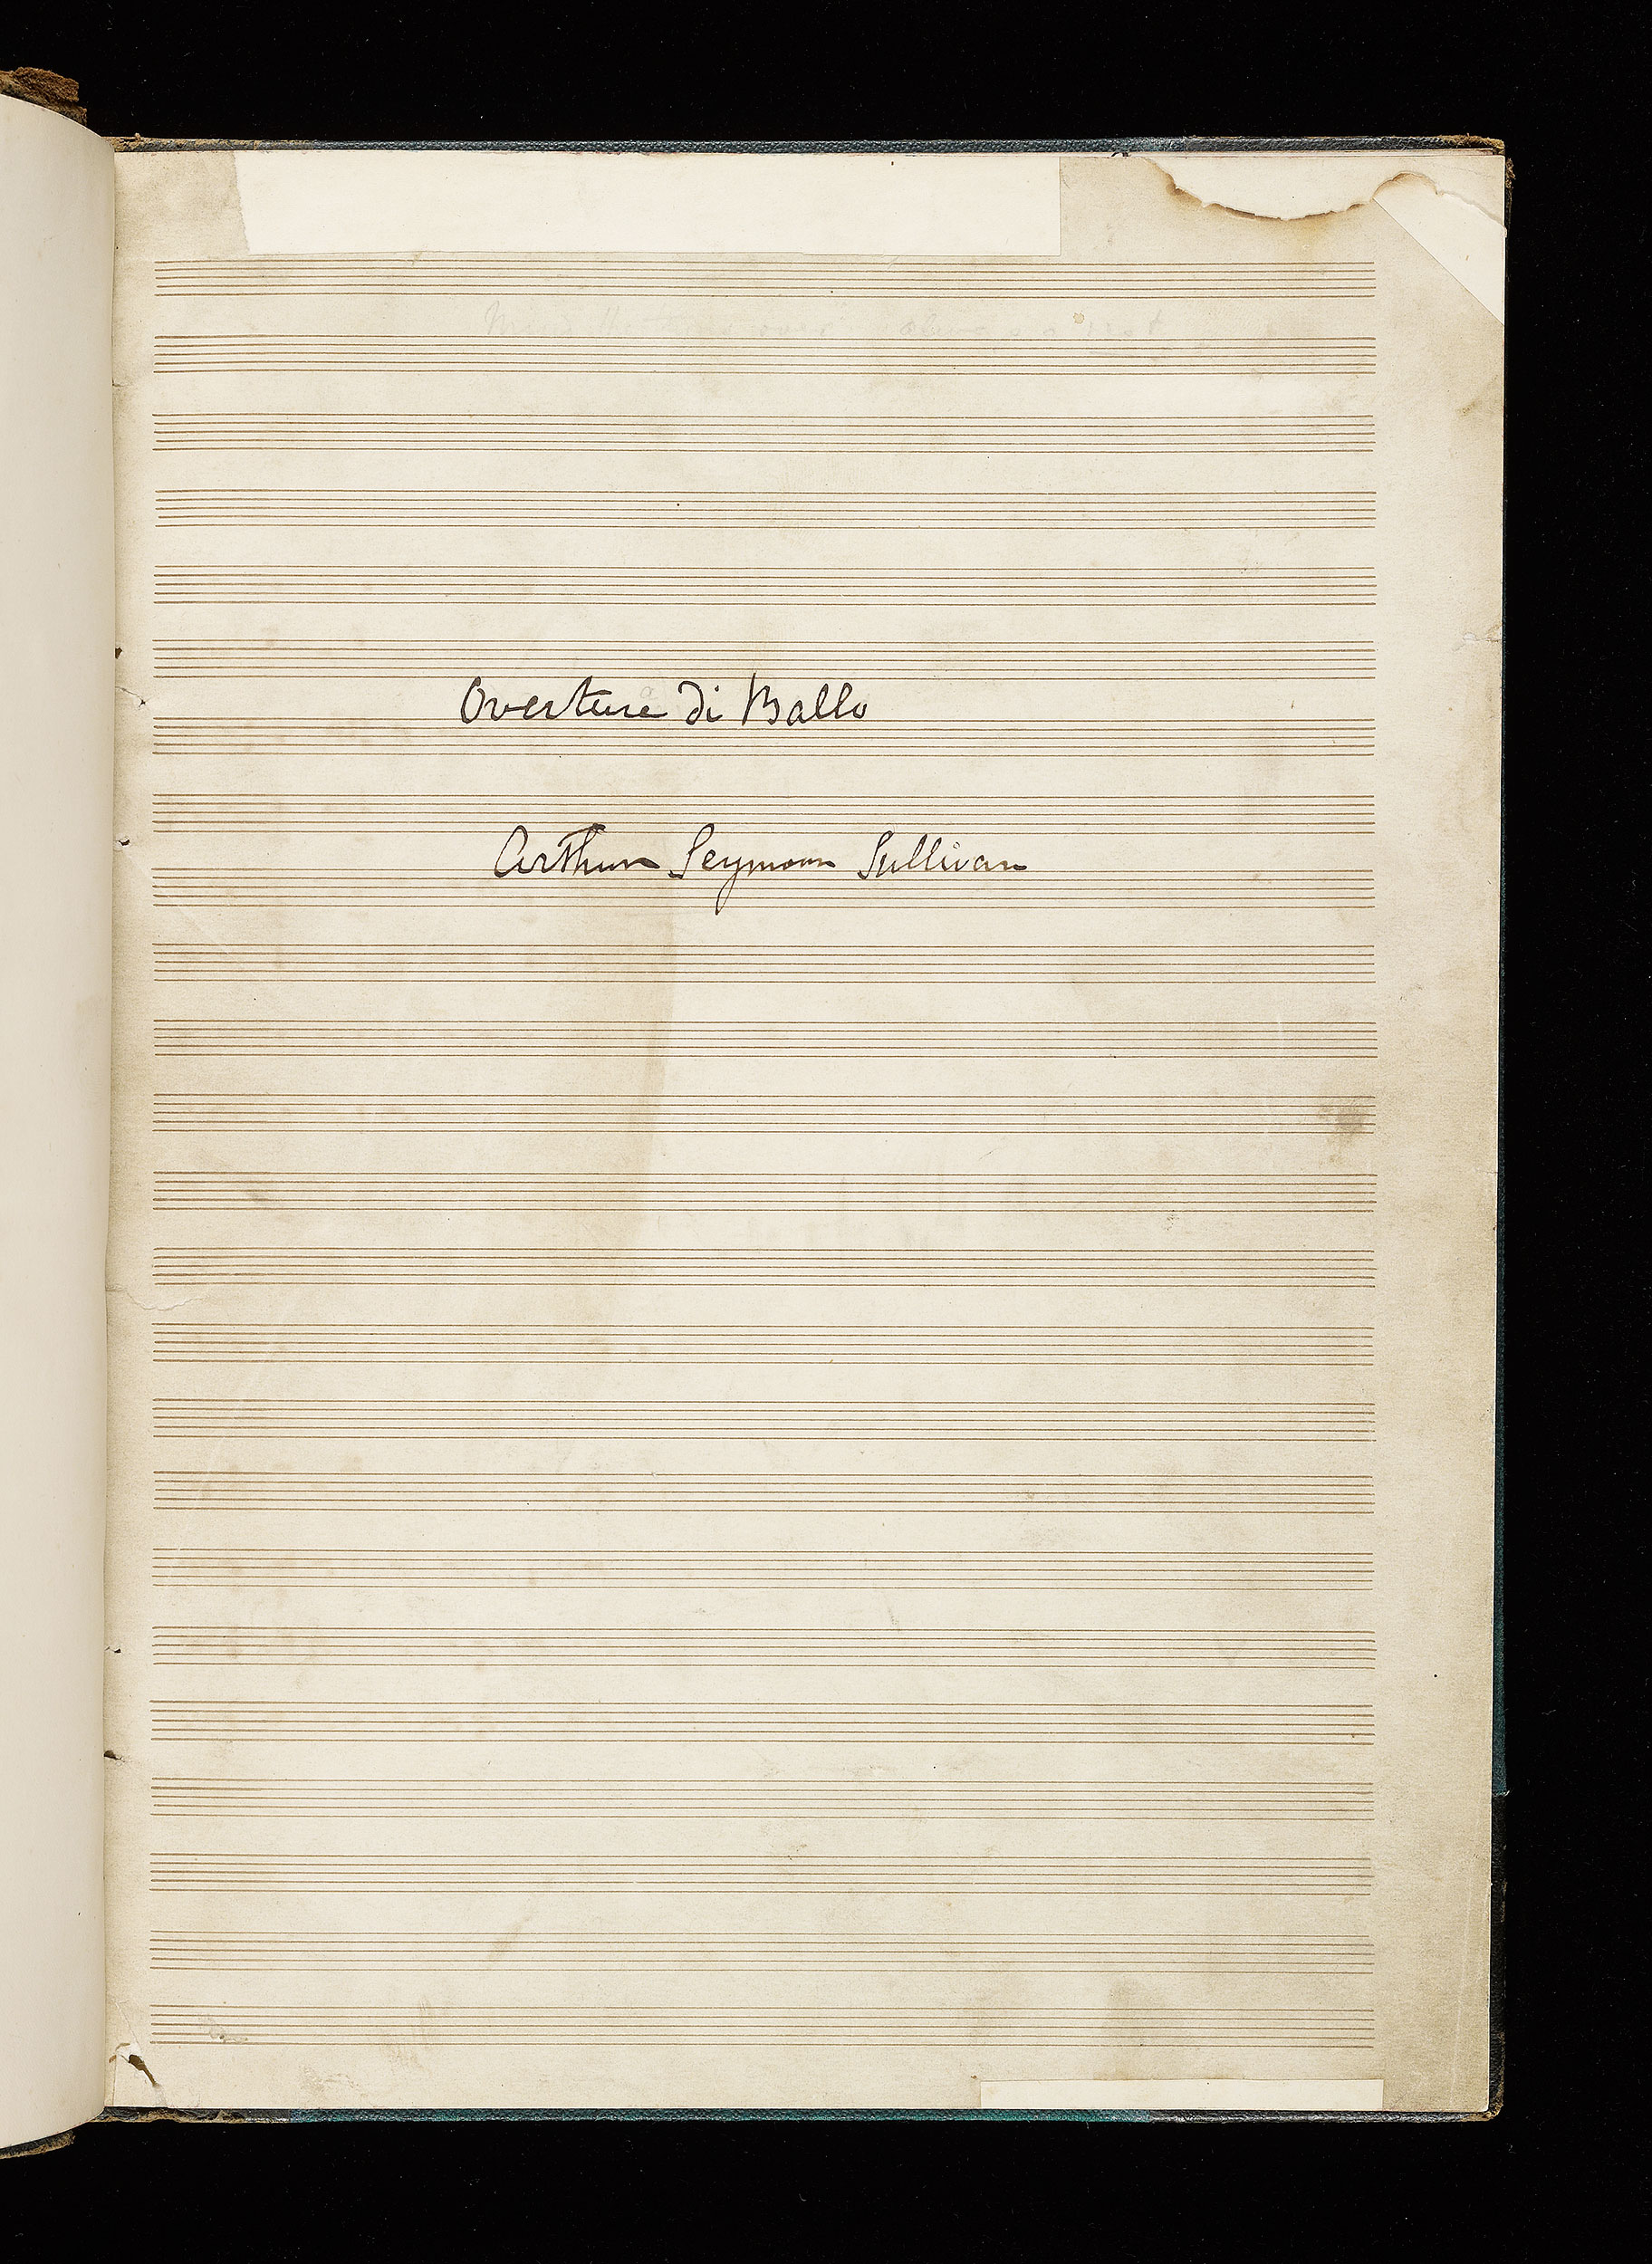 Overture di Ballo
Arthur Seymour Sullivan